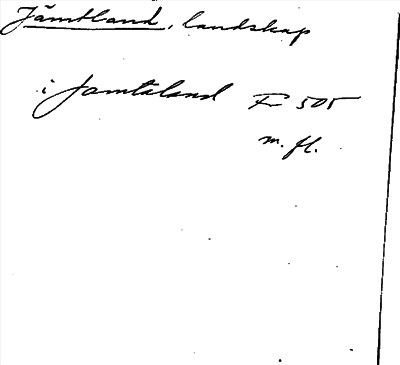 Jämtland, landskap
i Jamtaland Fr 505
m. fl.